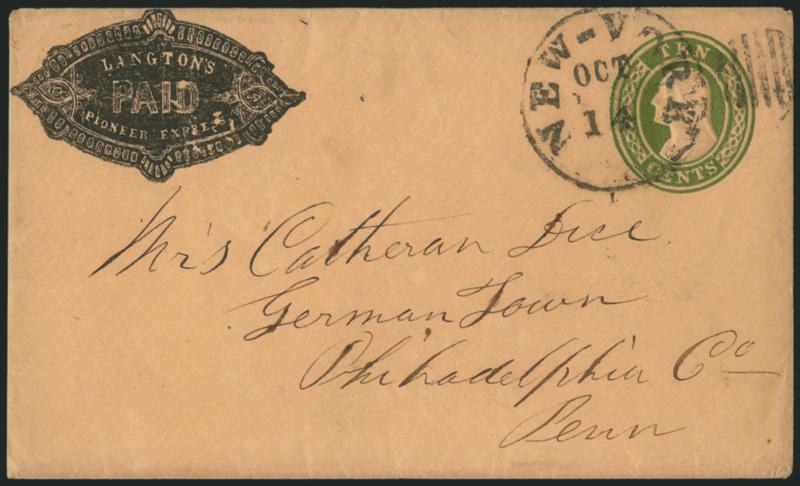 LANGTON'S
PAID
PIONEER EXPRESS
NEW-YORK
OCT
14
TEN
CENTS
Mrs Catheran Dice
German Town
Philadelphia Co
Penn